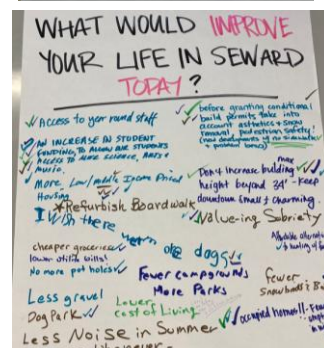 WHAT WOULD IMPROVE
YOUR LIFE IN SEWARD
TODAY?
Access to year round staff
AN INCREASE IN STUDENT
FUNDING, TO ALLOW OUR STUDENTS
ACCESS TO MORE SCIENCE, ARTS &
MUSIC.
More Low/middle Income Priced
Housing
Refurbish Boardwalk
I wish there were more dogs
cheaper groceries
lower utility bills!
No more pot holes
Less gravel
Dog Park
Lower
cost of Living
Less Noise in Summer
before granting conditional
build permits take into
account asthetics & snow
removal, pedestrian safety!
(new developments w/ no sidewalks
Don't increase building
height beyond 34' - keep
downtown small & charming.
Valuering Sobriety
Affordable alternative
Fewer campgrounds
More Parks
fewer
occupied homes!!